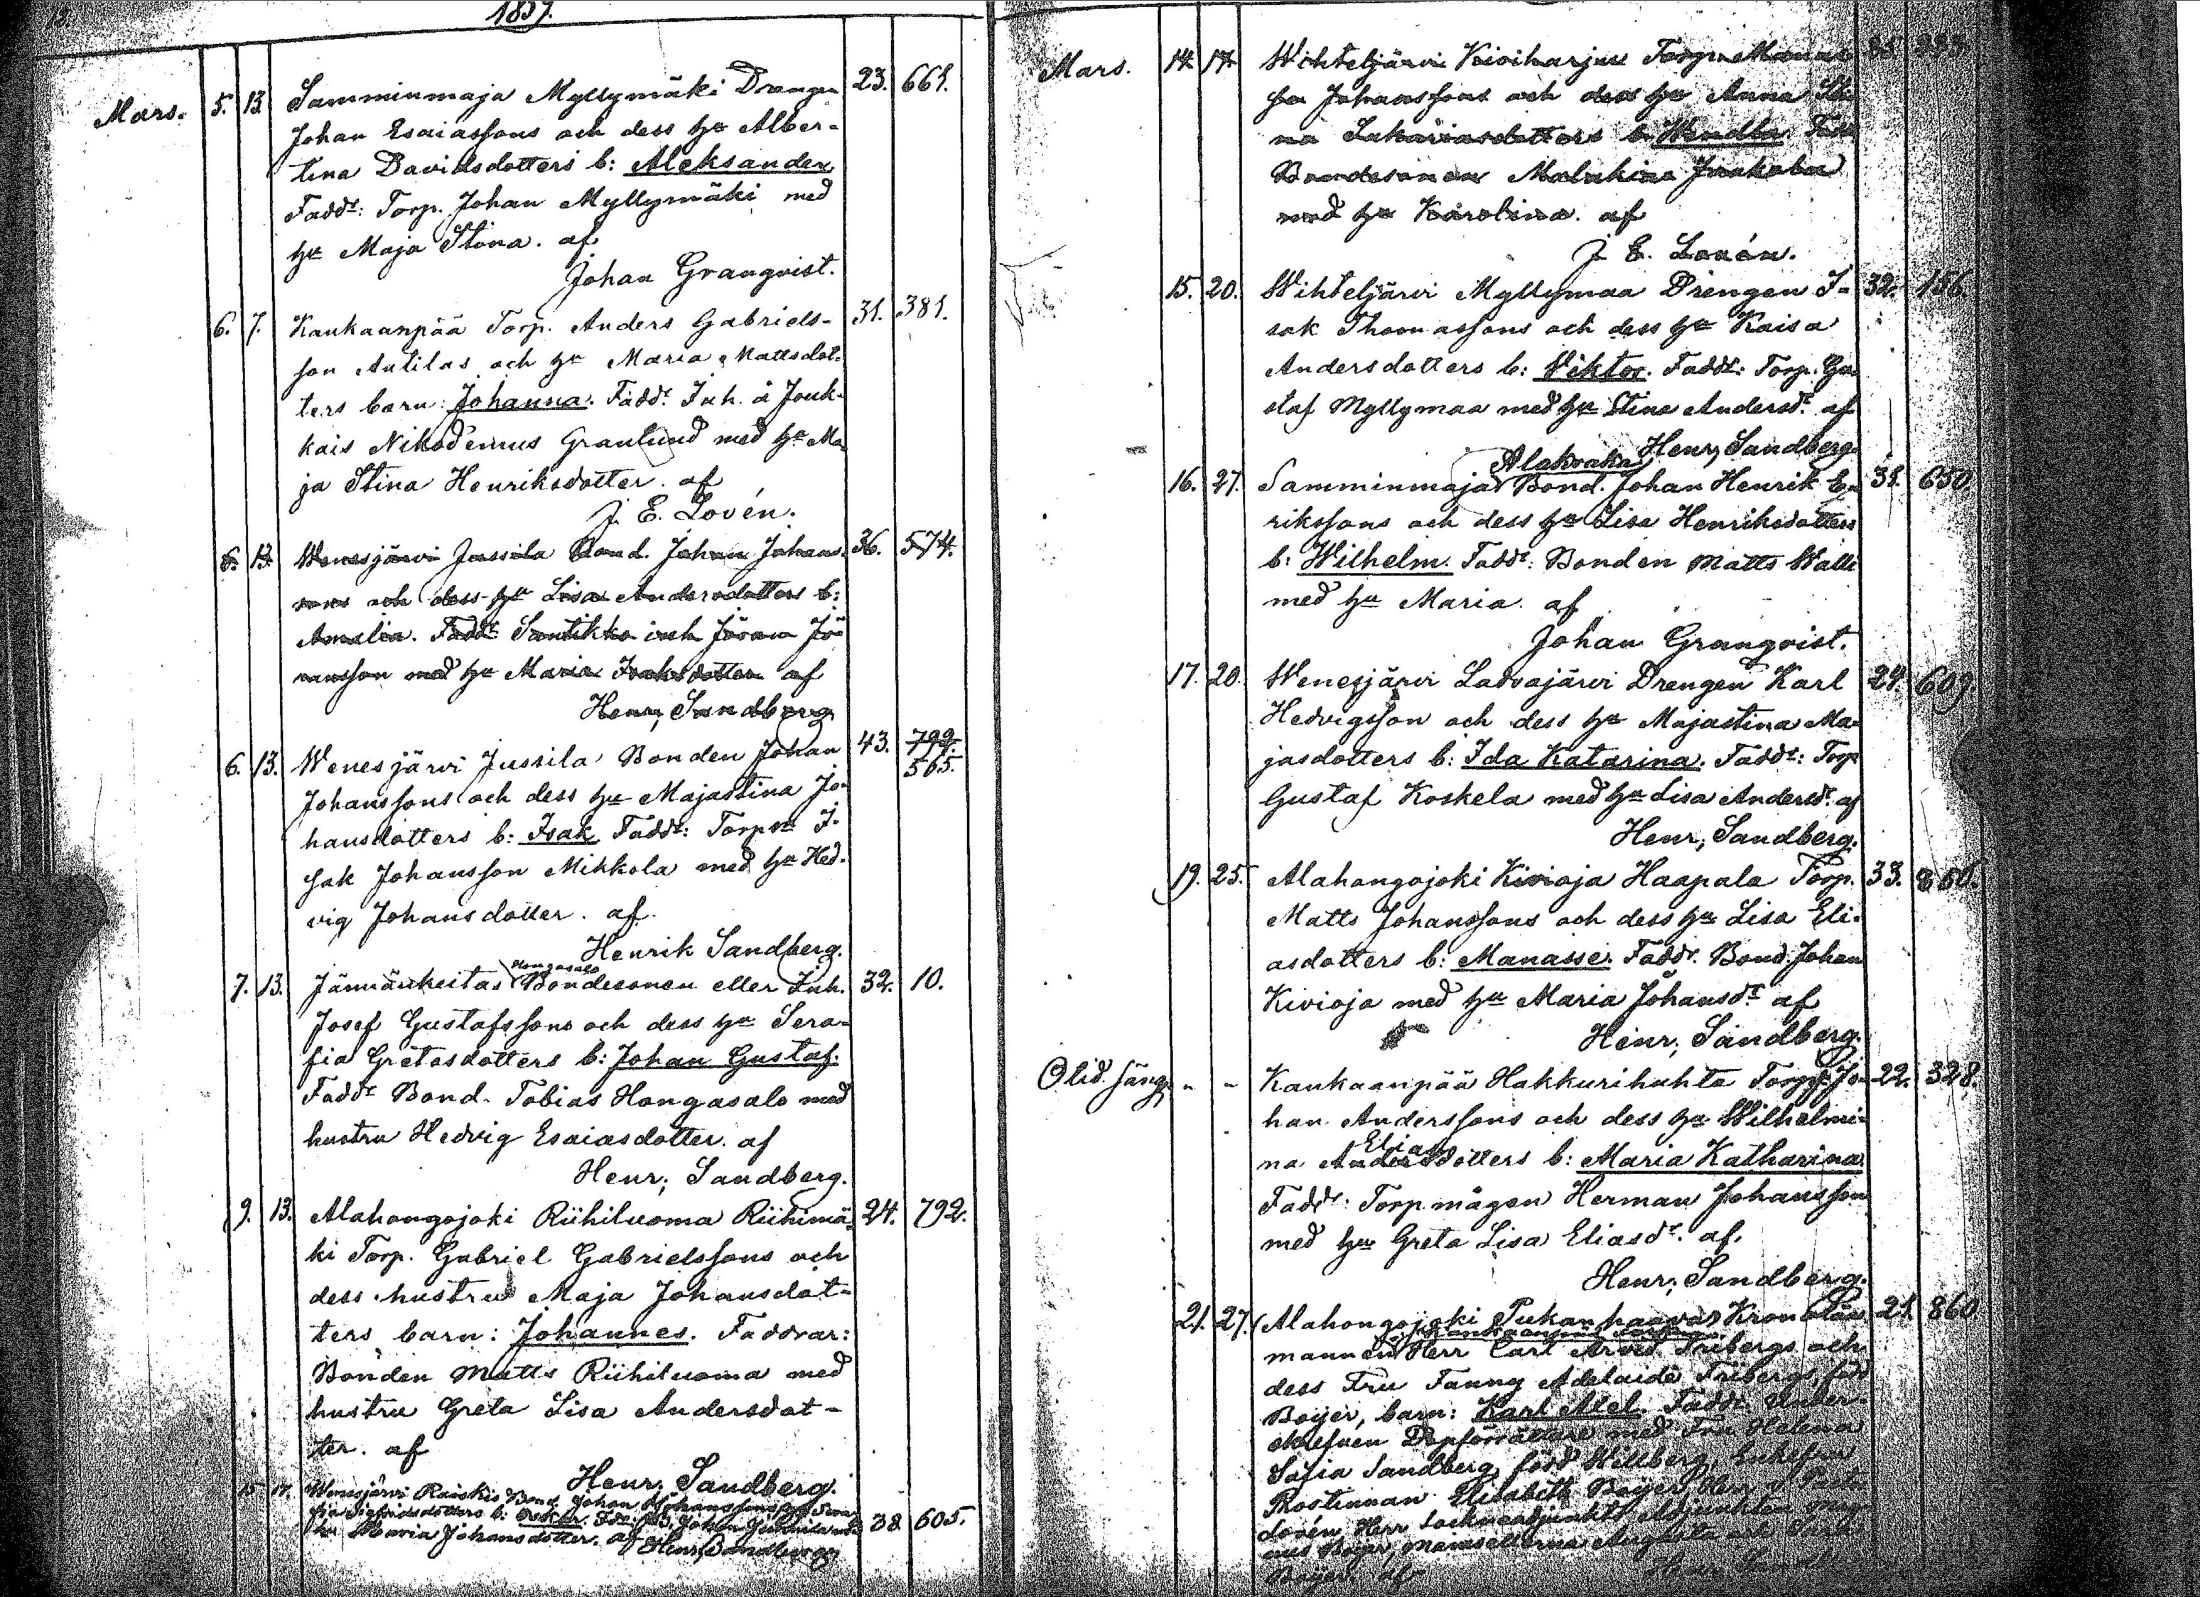 18.
1857.
Mars. 5. 13. Samminmaja Myllymäki Drengen 23. 661.
Johan Esaiassons och dess hu Alber-
tina Davidsdotters b: Aleksander
Faddr: Torp. Johan Myllymäki med
hu Maja Stina. af
Johan Granqvist.
6. 7. Kankaanpää Torp. Anders Gabriels- 31. 381.
son Antilas och hu Maria Mattsdot-
ters barn: Johanna. Faddr. Inh. å Jouk-
kais Nikodemus Granlund med hu Ma-
ja Stina Henriksdotter. af
J. E. Lovén.
6. 13. Wenesjärvi Jussila Bond. Johan Johans- 36. 574.
sons och dess hu Lisa Andersdotters b:
Amalia. Faddr Santikko inh Jöran Jö-
ransson med hu Maria Isaksdotter af
Henr, Sandberg
6. 13. Wenesjärvi Jussila Bonden Johan 43. 799.
565.
Johanssons och dess hu Majastina Jo-
hansdotters b: Isak. Faddr: Torpn I-
sak Johansson Mikkola med hu Hed-
vig Johansdotter. af.
Henrik Sandberg.
Hongasalo
7. 13. Jämiänkeitas Bondesonen eller Inh. 32. 10.
Josef Gustafssons och dess hu Sera-
fia Gretasdotters b: Johan Gustaf.
Faddr Bond. Tobias Hongasalo med
hustru Hedvig Esaiasdotter. af
Henr; Sandberg.
9. 13. Alahongojoki Riihiluoma Riihimä- 24. 792.
ki Torp. Gabriel Gabrielssons och
dess hustru Maja Johansdot-
ters barn: Johannes. Faddrar:
Bonden Matts Riihiluoma med
hustru Greta Lisa Andersdot-
ter. af
Henr, Sandberg.
15 17. Wenesjärvi Raiskis Bond. Johan Johanssons
Sigfridsdotters b: Oskar. Johan
hu Maria Johansdotter. af Henr, Sandberg 38 605.
Mars. 14. 17. Wihteljärvi Kiviharjun Torp. Manas-
se Johanssons och dess hu Anna Sti-
na Sakariasdotters b: Wendla. Faddr
Bondesonen Malakias Jaakola
med hu Karolina. af
J. E. Lovén.
15. 20. Wihteljärvi Myllymaa Drengen I- 32. 156.
sak Thomassons och dess hu Kaisa
Andersdotters b: Viktor. Faddr: Torp. Gu-
staf Myllymaa med hu Stina Andersdr. af
Henr, Sandberg.
Alakraka
16. 27. Samminmaja Bond. Johan Henrik En- 38. 650
rikssons och dess hu Lisa Henriksdotters
b: Wilhelm. Faddr: Bonden Matts Walli
med hu Maria. af
Johan Granqvist.
17. 20. Wenesjärvi Ladvajärvi Drengen Karl 24. 609.
Hedvigsson och dess hu Majastina Ma-
jasdotters b: Ida Katarina. Faddr: Torp
Gustaf Koskela med hu Lisa Andersdr. af
Henr, Sandberg.
19. 25. Alahongojoki Kivioja Haapala Torp. 33. 850.
Matts Johanssons och dess hu Lisa Eli-
asdotters b: Manasse. Faddr. Bond. Johan
Kivioja med hu Maria Johansdr af
Henr, Sandberg.
Olid. säng. " - Kankaanpää Hakkurihuhta Torpp. Jo- 22. 328.
han Anderssons och dess hu Wilhelmi-
Elias
na Andersdotters b: Maria Katharina
Faddr: Torp mågen Herman Johansson
med hu Greta Lisa Eliasdr. af.
Henr; Sandberg.
21. 27. Alahongojoki Pukanhaava Krono Läns 21. 860
mannen Herr Carl Arvid Fribergs och
dess Fru Fanny Adelaide Fribergs född
Boijer, barn: Karl Axel. Faddr. Under-
skrefven Dopförrättare med Fru Helena
Sofia Sandberg född Hillberg, Enkefru
Prostinnan Elisabeth Boijer, Herr
Lovén, Herr Sockneadjunkts Adjunkten
Boijer, mamsellerna Augusta och
Boijer. af